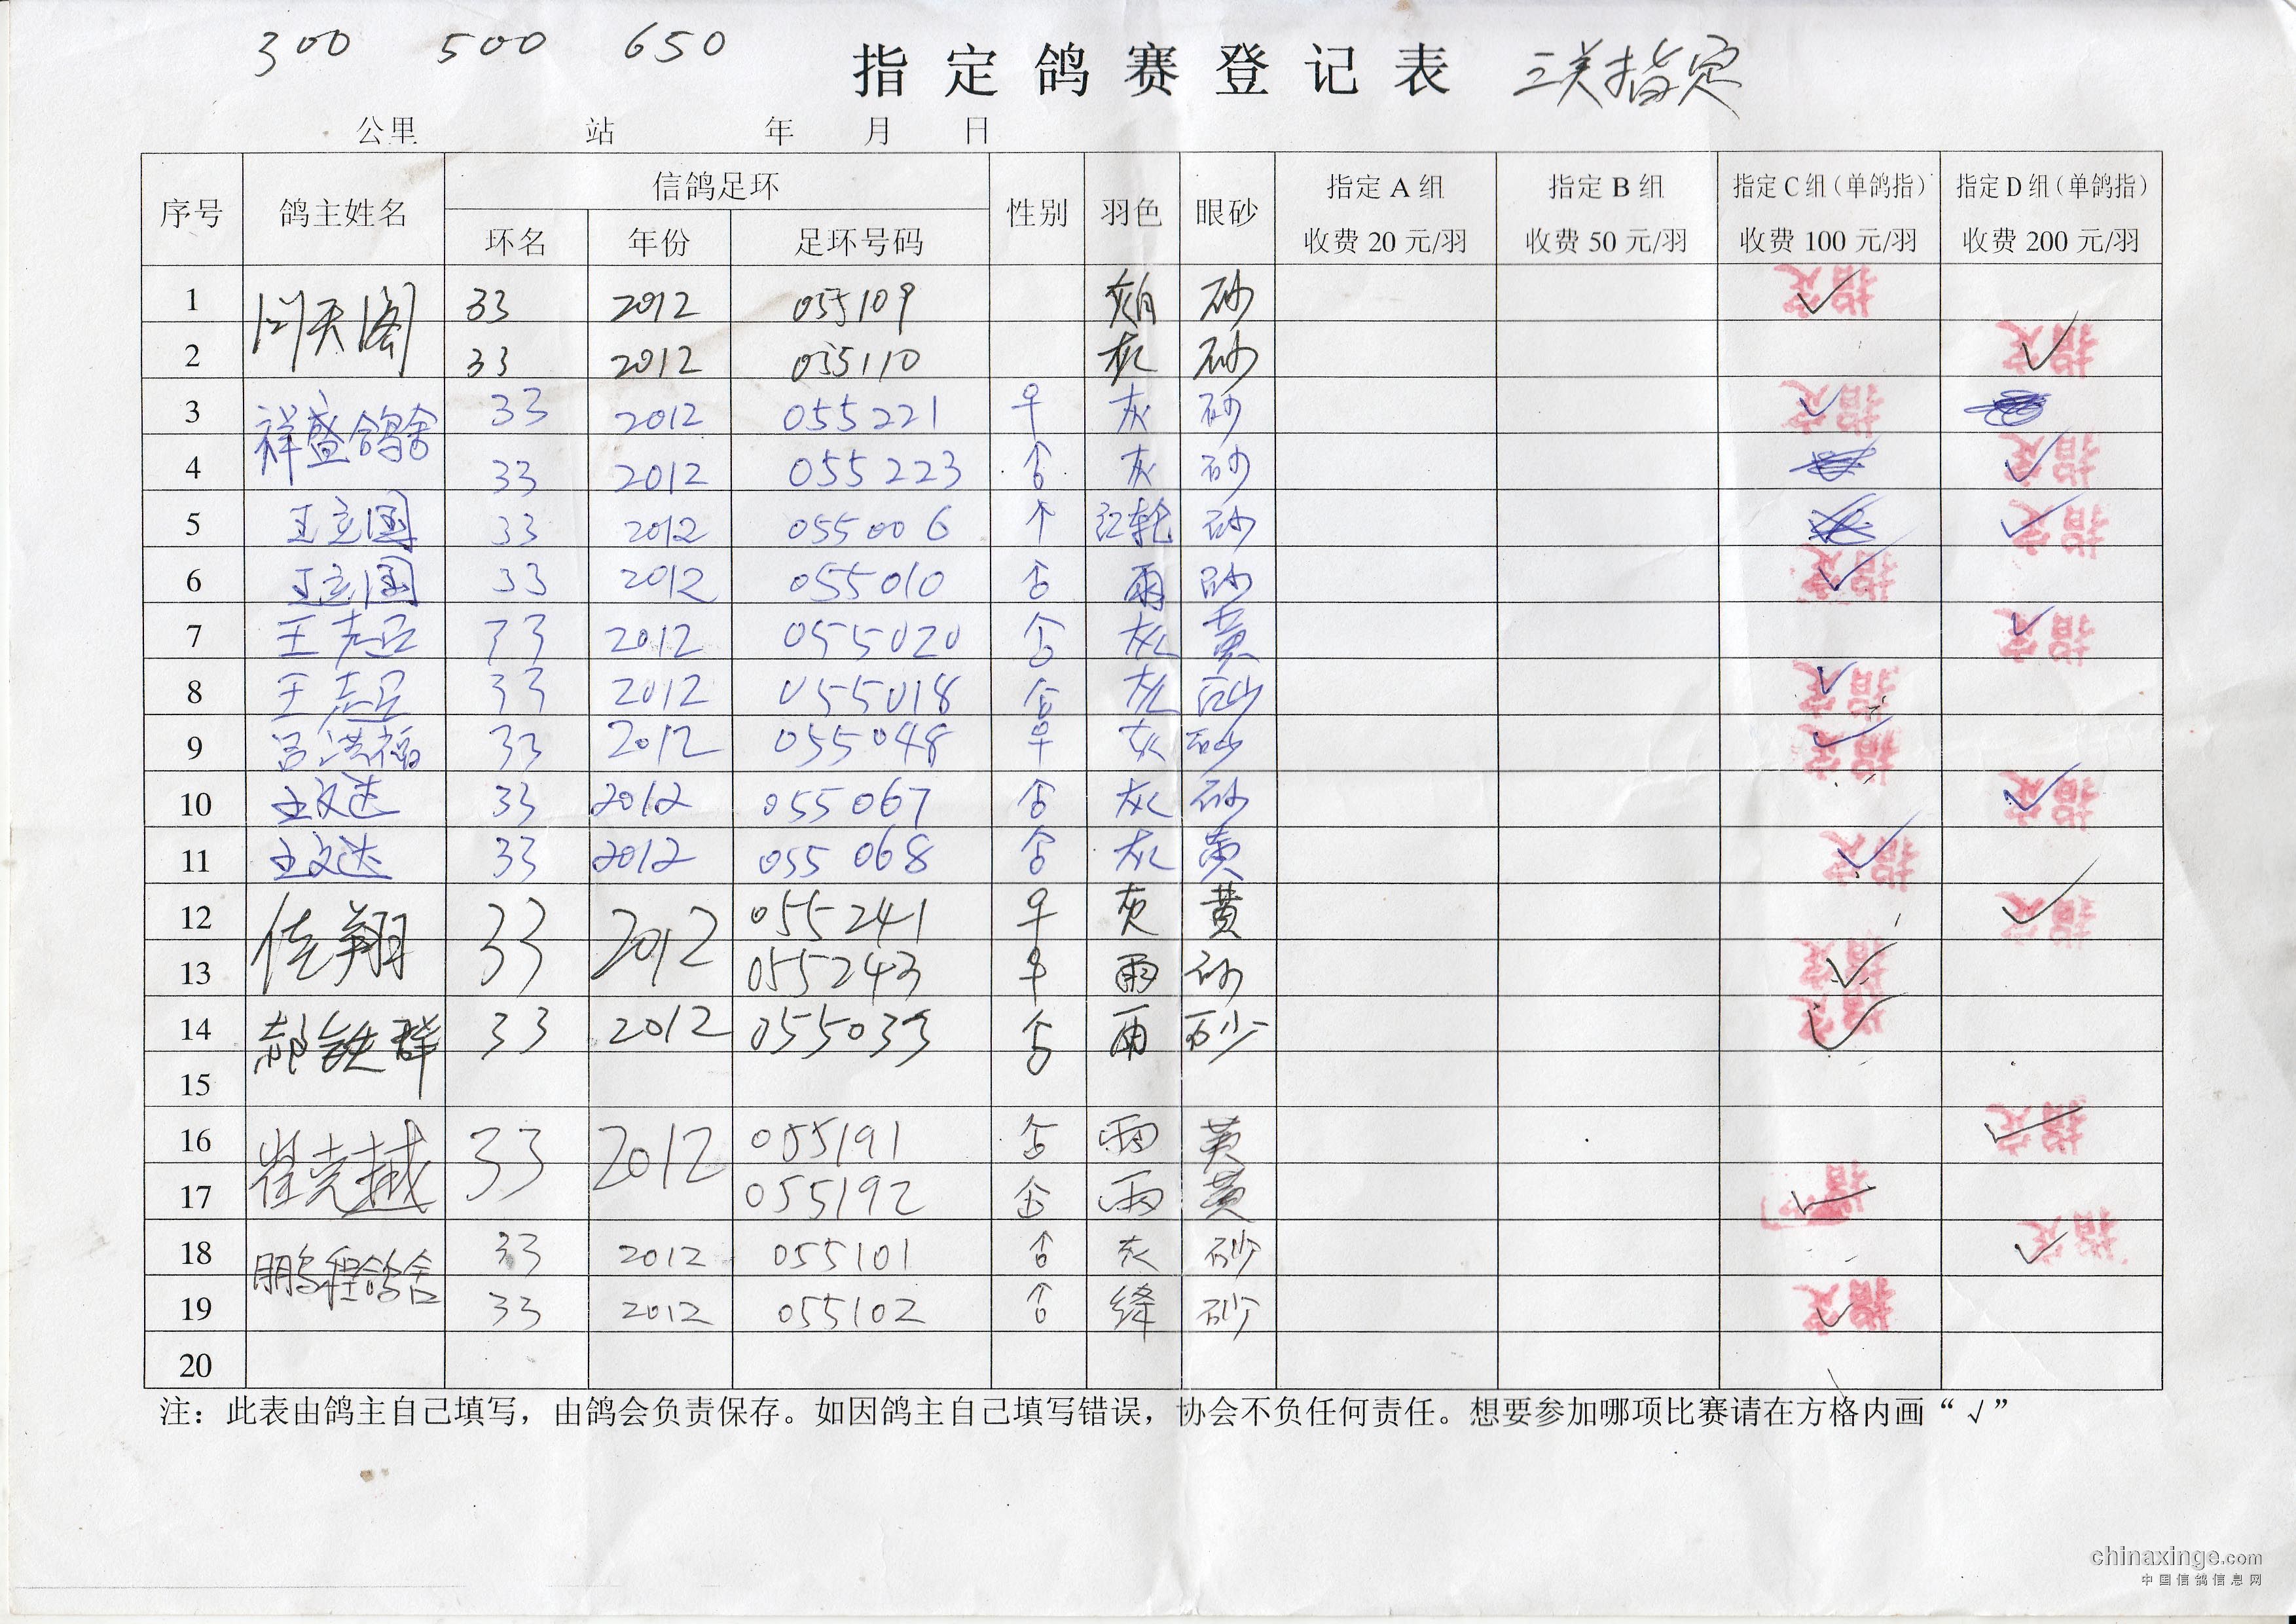 300 500 650 指定鸽赛登记表 三关指定
公里 站 年 月 日
序号 鸽主姓名 信鸽足环 性别 羽色 眼砂 指定A组 指定B组 指定C组（单鸽指） 指定D组（单鸽指）
环名 年份 足环号码 收费20元/羽 收费50元/羽 收费100元/羽 收费200元/羽
1 问天阁 33 2012 055109 砂 指定 ✓
2 33 2012 055110 灰 砂 指定 ✓
3 祥盛鸽舍 33 2012 055221 ♀ 灰 砂 指定 ✓
4 33 2012 055223 ♂ 灰 砂 指定 ✓
5 王立国 33 2012 055006 ↑ 红轮 砂 指定 ✓
6 王立国 33 2012 055010 ♂ 雨 砂 指定 ✓
7 33 2012 055020 ♂ 灰 黄 指定 ✓
8 33 2012 055018 ♂ 灰 砂 指定 ✓
9 吕洪福 33 2012 055048 ♀ 灰 砂 指定 ✓
10 王文达 33 2012 055067 ♂ 灰 砂 指定 ✓
11 王文达 33 2012 055068 ♂ 灰 黄 指定 ✓
12 佳翔 33 2012 055241 ♀ 灰 黄 指定 ✓
13 055243 ♀ 雨 砂 指定 ✓
14 郝铁群 33 2012 055033 ♂ 雨 砂 指定 ✓
15
16 崔克越 33 2012 055191 ♂ 雨 黄 指定 ✓
17 055192 ♂ 雨 黄 指定 ✓
18 鹏程鸽舍 33 2012 055101 ♂ 灰 砂 指定 ✓
19 33 2012 055102 ♂ 绛 砂 指定 ✓
20
注：此表由鸽主自己填写，由鸽会负责保存。如因鸽主自己填写错误，协会不负任何责任。想要参加哪项比赛请在方格内画“√”
chinaxinge.com
中国信鸽信息网